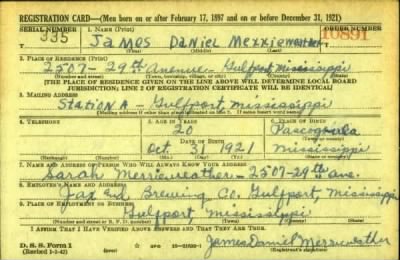 REGISTRATION CARD—(Men born on or after February 17, 1897 and on or before December 31, 1921)
SERIAL NUMBER 1. NAME (Print) ORDER NUMBER
335 James Daniel Merrieweather 10891
2. PLACE OF RESIDENCE (Print)
2507-29th avenue- Gulfport Mississippi
(Number and street) (Town, township, village, or city) (County) (State)
[THE PLACE OF RESIDENCE GIVEN ON THE LINE ABOVE WILL DETERMINE LOCAL BOARD
JURISDICTION; LINE 2 OF REGISTRATION CERTIFICATE WILL BE IDENTICAL]
3. MAILING ADDRESS
Station A - Gulfport, Mississippi
[Mailing address if other than place indicated on line 2. If same insert word same]
4. TELEPHONE 5. AGE IN YEARS 6. PLACE OF BIRTH
20 Pascagoula
DATE OF BIRTH
Oct 31 1921 Mississippi
(Exchange) (Number) (Mo.) (Day) (Yr.) (State or country)
7. NAME AND ADDRESS OF PERSON WHO WILL ALWAYS KNOW YOUR ADDRESS
Sarah Merrieweather - 2507-29th ave.
8. EMPLOYER'S NAME AND ADDRESS
Jax Brewing Co. Gulfport, Mississippi
9. PLACE OF EMPLOYMENT OR BUSINESS
Gulfport, Mississippi
(Number and street or R. F. D. number) (Town) (County) (State)
I AFFIRM THAT I HAVE VERIFIED ABOVE ANSWERS AND THAT THEY ARE TRUE.
D. S. S. Form 1
(Revised 1-1-42) James Daniel Merrieweather
(Registrant's signature)